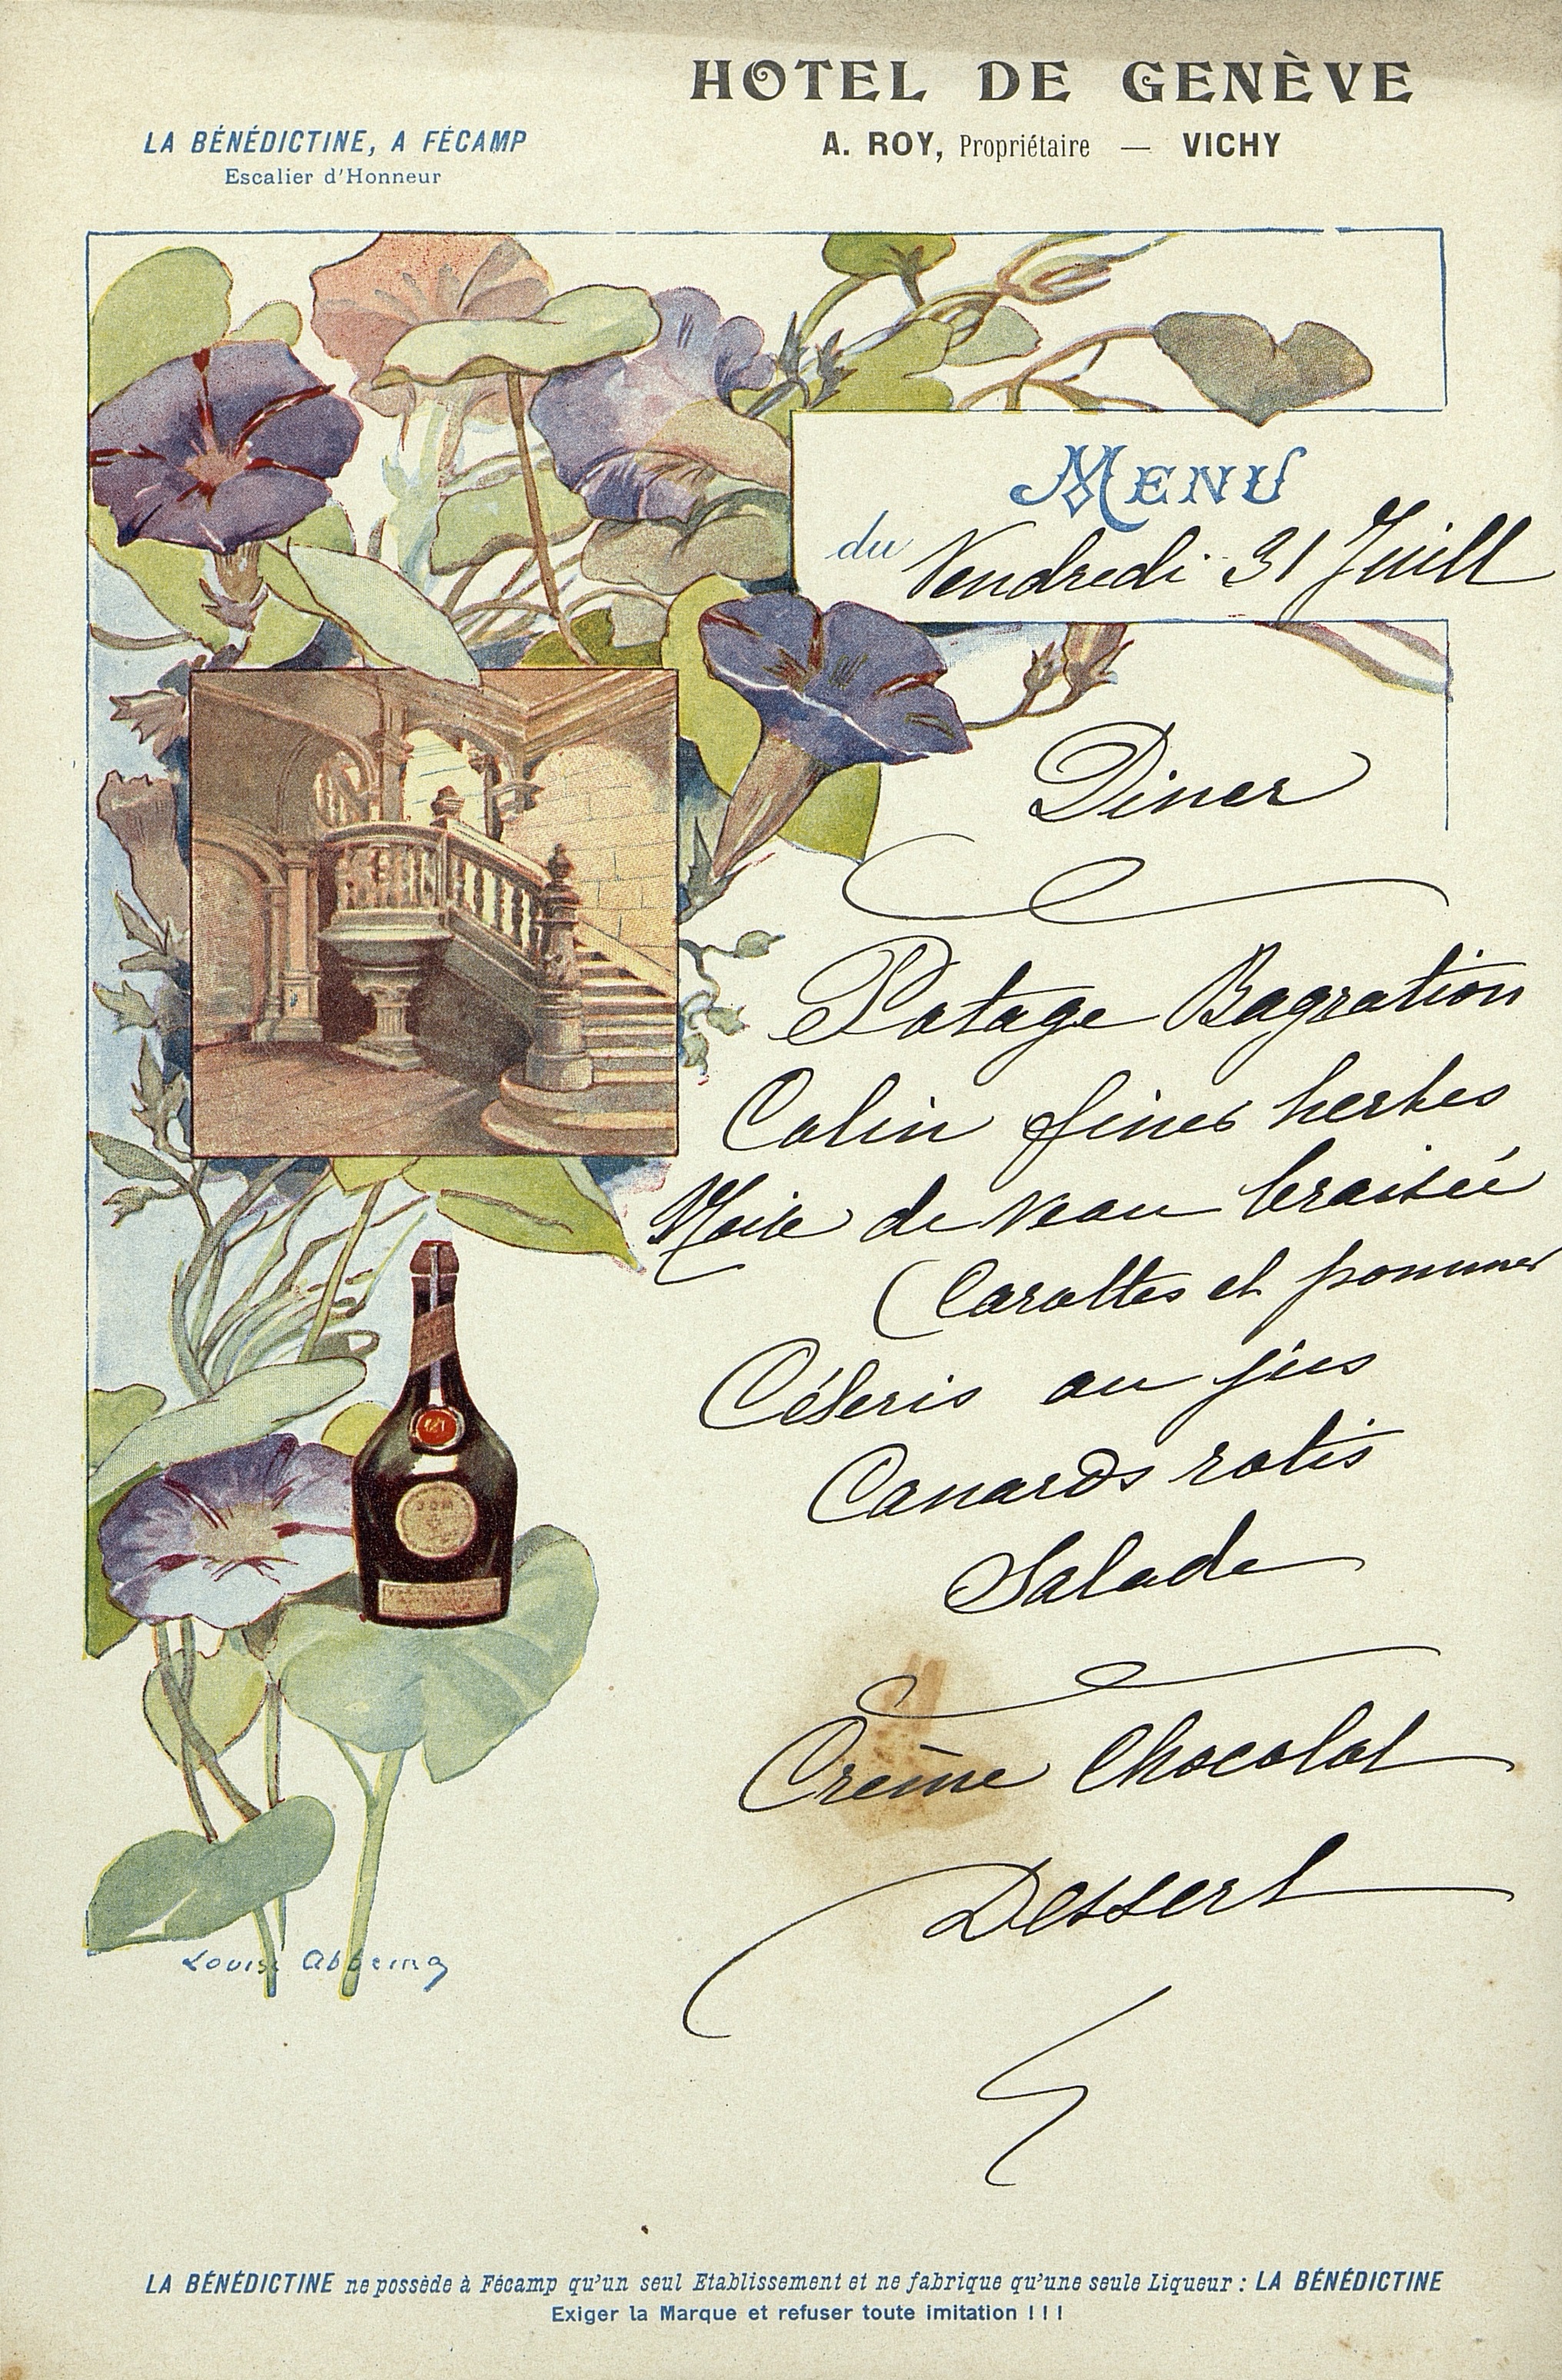 HOTEL DE GENÈVE
A. ROY, Propriétaire — VICHY
LA BÉNÉDICTINE, A FÉCAMP
Escalier d'Honneur
MENU
du Vendredi 31 Juill
Diner
Potage Bagration
Colin fines herbes
Noix de veau braisée
(Carottes et pommes
Céleris au jus
Canards rotis
Salade
Crème Chocolat
Dessert
Louise Abbema
LA BÉNÉDICTINE ne possède à Fécamp qu'un seul Etablissement et ne fabrique qu'une seule Liqueur : LA BÉNÉDICTINE
Exiger la Marque et refuser toute imitation ! ! !